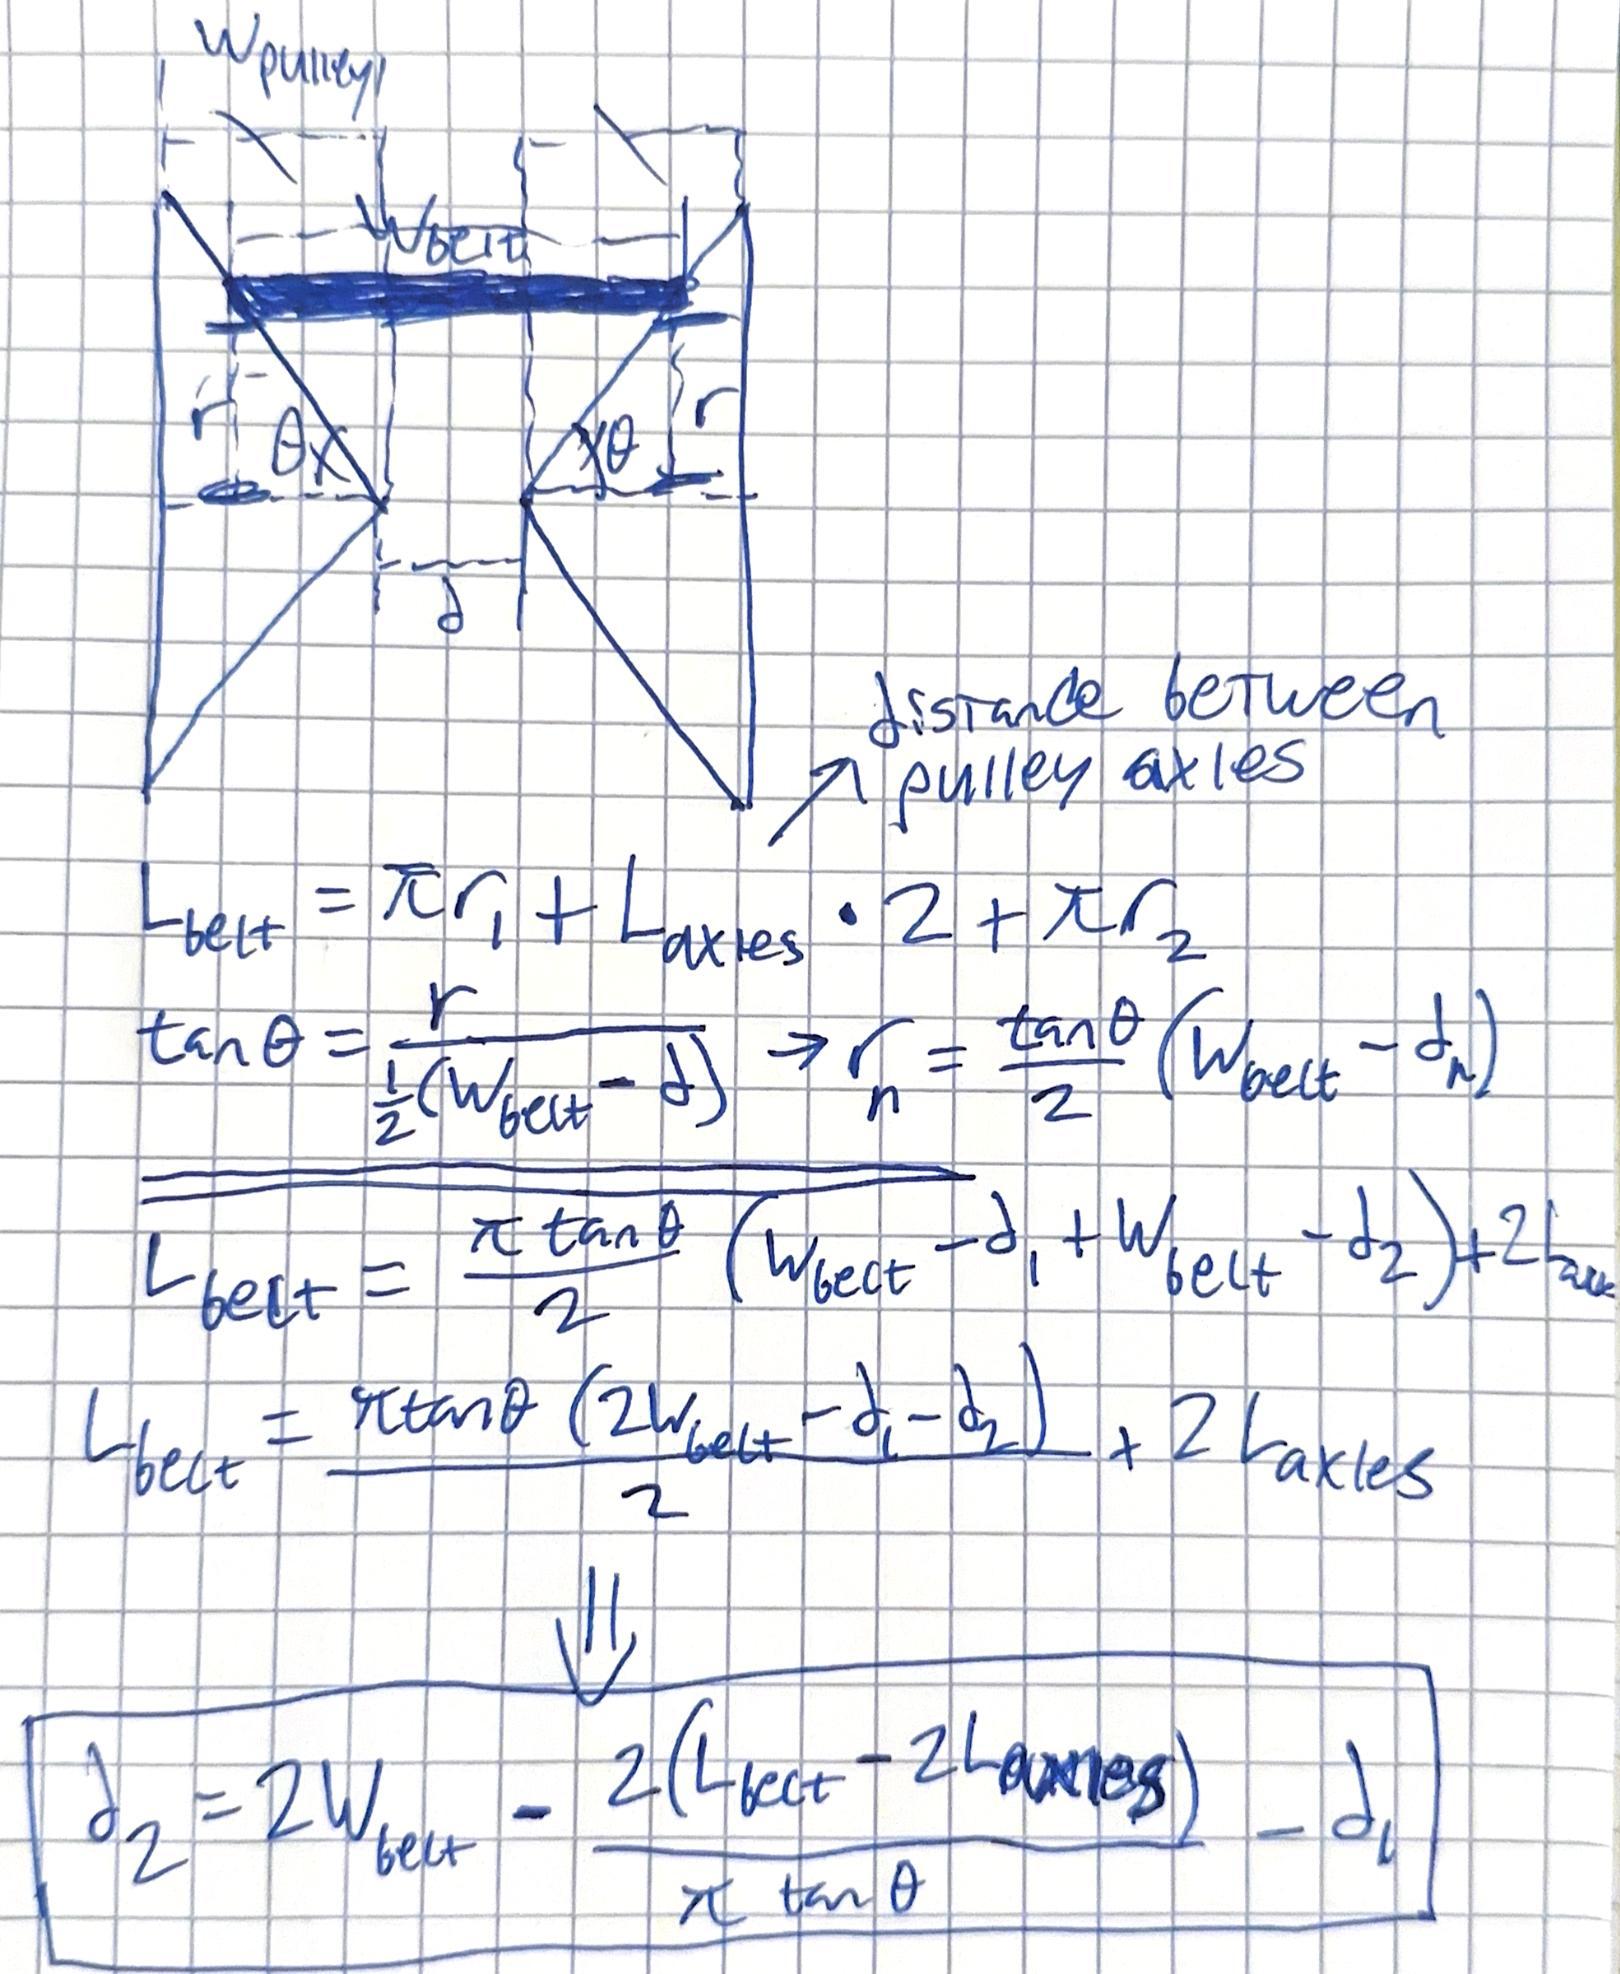 Wpulley
Wbelt
r θ θ r
d
distance between
pulley axles
L_belt = πr₁ + L_axles · 2 + πr₂
tanθ = r / ½(W_belt - d) → r_n = tanθ/2 (W_belt - d_n)
L_belt = π tanθ/2 (W_belt - d₁ + W_belt - d₂) + 2L
L_belt = πtanθ (2W_belt - d₁ - d₂) / 2 + 2 L_axles
⇓
d₂ = 2W_belt - 2(L_belt - 2L_axles) / π tan θ - d₁